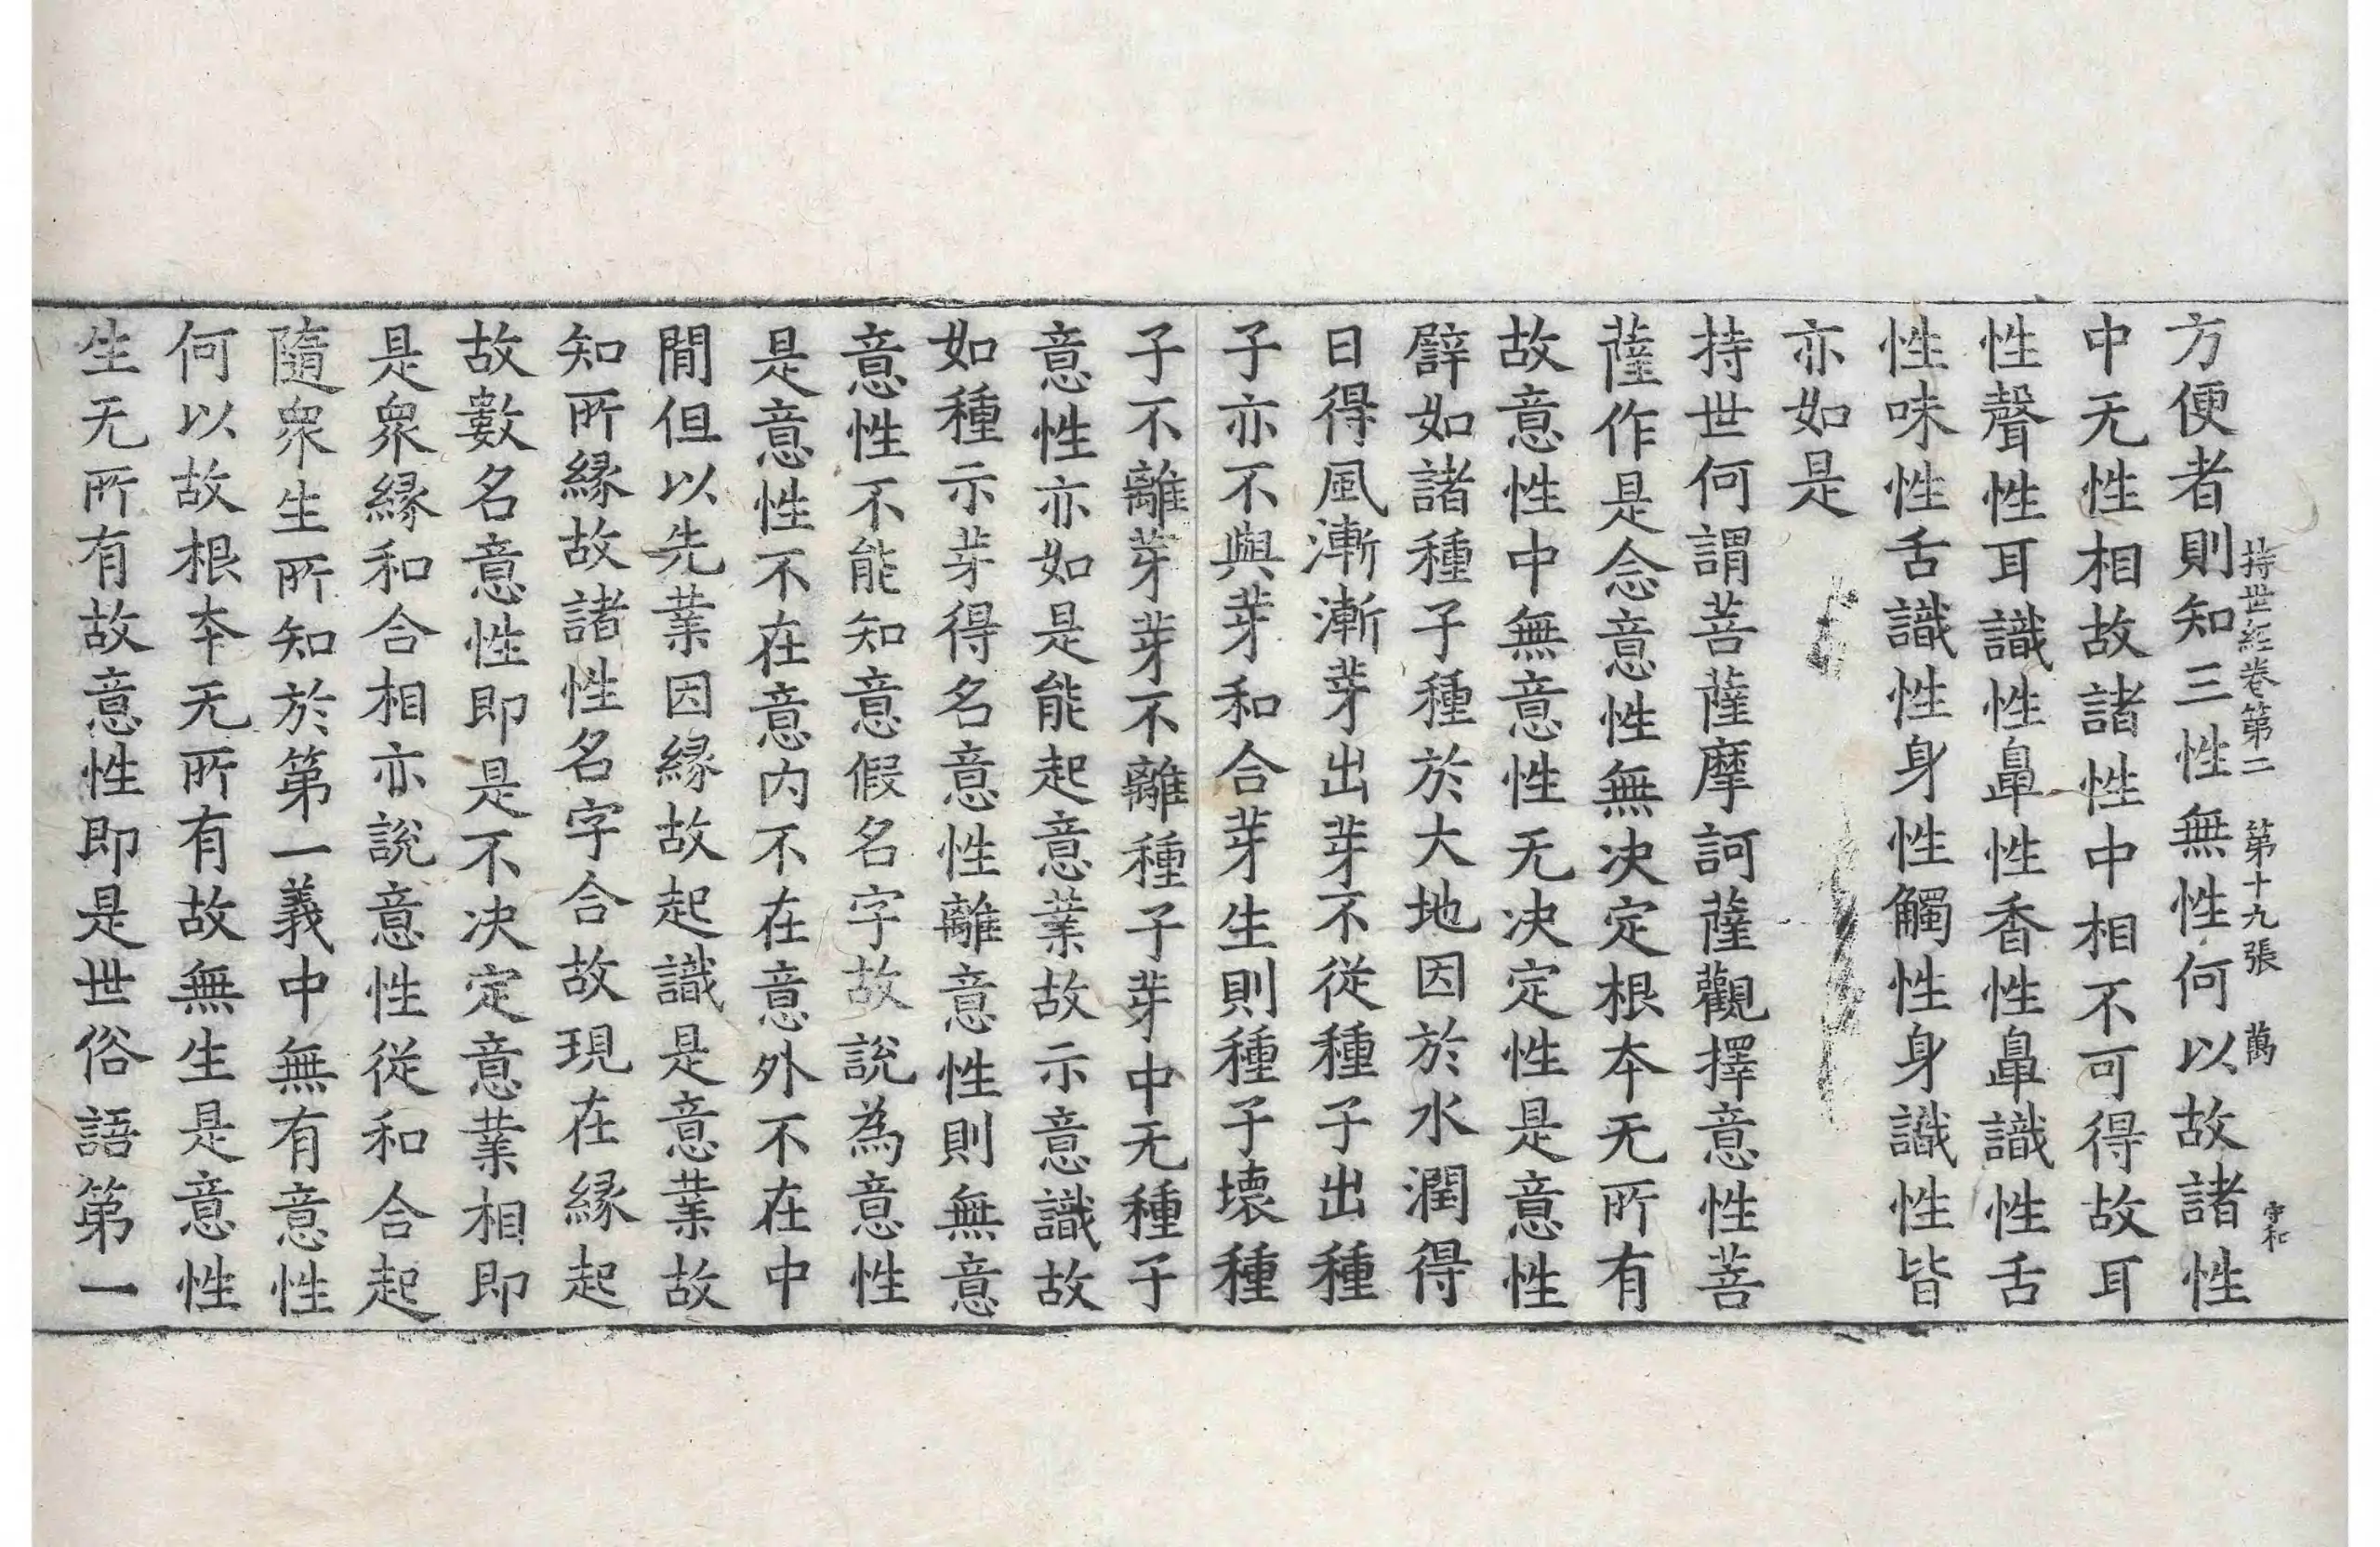 持世經卷第二　第十九張　萬
守和
方便者則知三性無性何以故諸性
中无性相故諸性中相不可得故耳
性聲性耳識性鼻性香性鼻識性舌
性味性舌識性身性觸性身識性皆
亦如是
持世何謂菩薩摩訶薩觀擇意性菩
薩作是念意性無决定根本无所有
故意性中無意性无决定性是意性
譬如諸種子種於大地因於水潤得
日得風漸漸芽出芽不從種子出種
子亦不與芽和合芽生則種子壞種
子不離芽芽不離種子芽中无種子
意性亦如是能起意業故示意識故
如種示芽得名意性離意性則無意
意性不能知意假名字故說為意性
是意性不在意内不在意外不在中
閒但以先業因緣故起識是意業故
知所緣故諸性名字合故現在緣起
故數名意性即是不决定意業相即
是衆緣和合相亦說意性從和合起
隨衆生所知於第一義中無有意性
何以故根本无所有故無生是意性
生无所有故意性即是世俗語第一